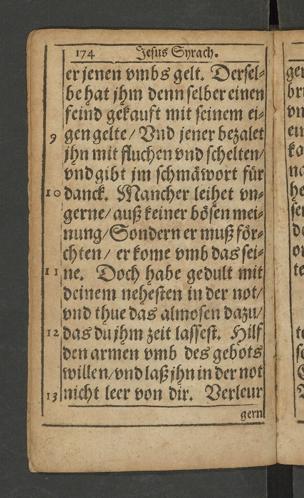 174 Jesus Syrach.
er jenen vmbs gelt. Dersel⸗
be hat jhm denn selber einen
feind gekauft mit seinem ei⸗
9 gen gelte/ Vnd jener bezalet
jhn mit fluchen vnd schelten/
vnd gibt im schmäwort für
10 danck. Mancher leihet vn⸗
gerne/ auß keiner bösen mei⸗
nung/ Sondern er muß för⸗
chten/ er kome vmb das sei⸗
11 ne. Doch habe gedult mit
deinem nehesten in der not/
vnd thue das almosen dazu/
12 das du jhm zeit lassest. Hilf
den armen vmb des gebots
willen/ vnd laß jhn in der not
13 nicht leer von dir. Verleur
gern